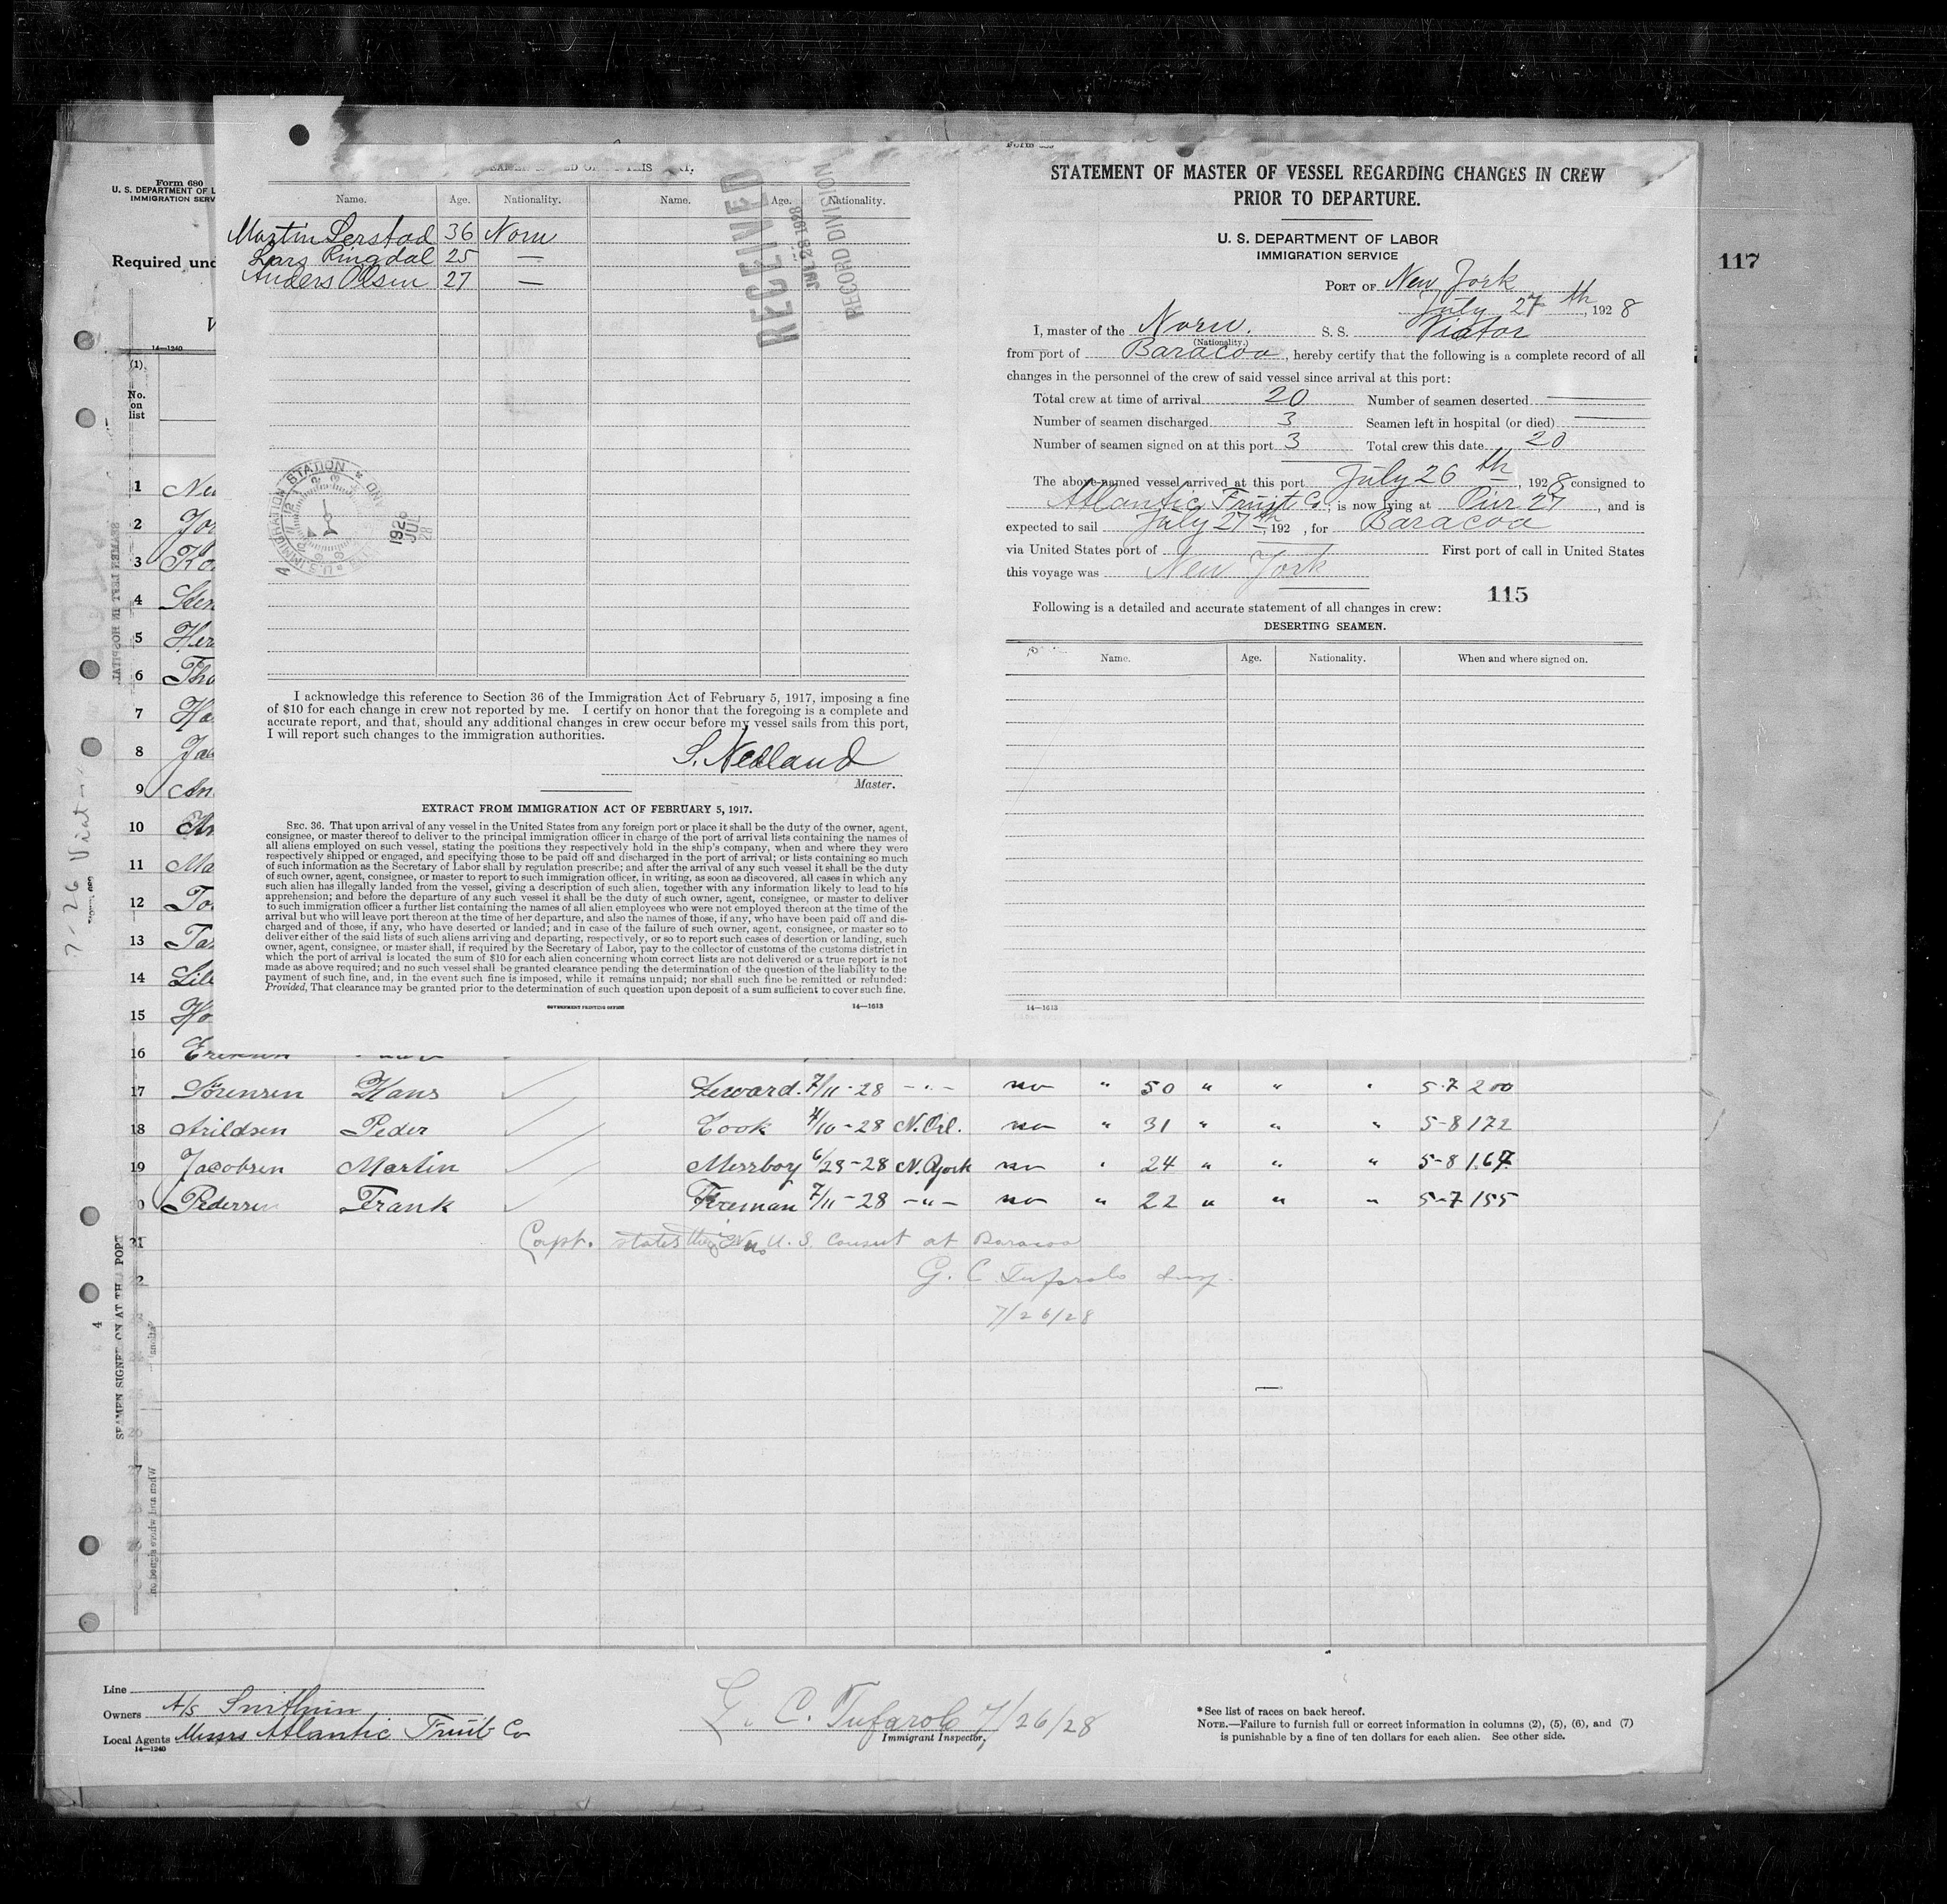 Form 680
U. S. DEPARTMENT OF L
IMMIGRATION SERV
Required und
V
14—1240
(1)
No.
on
list
1
2
3
4
5
6
7
8
9
10
11
12
13
14
15
16
THIS
Name. Age. Nationality. Name. Age. Nationality.
Martin Lerstad 36 Norw
Lars Ringdal 25 —
Anders Olsen 27 —
RECEIVED
JUL 28 1928
RECORD DIVISION
IMMIGRATION STATION
1928
JUL
28
I acknowledge this reference to Section 36 of the Immigration Act of February 5, 1917, imposing a fine
of $10 for each change in crew not reported by me. I certify on honor that the foregoing is a complete and
accurate report, and that, should any additional changes in crew occur before my vessel sails from this port,
I will report such changes to the immigration authorities.
S. Nedland
Master.
EXTRACT FROM IMMIGRATION ACT OF FEBRUARY 5, 1917.
SEC. 36. That upon arrival of any vessel in the United States from any foreign port or place it shall be the duty of the owner, agent,
consignee, or master thereof to deliver to the principal immigration officer in charge of the port of arrival lists containing the names of
all aliens employed on such vessel, stating the positions they respectively hold in the ship's company, when and where they were
respectively shipped or engaged, and specifying those to be paid off and discharged in the port of arrival; or lists containing so much
of such information as the Secretary of Labor shall by regulation prescribe; and after the arrival of any such vessel it shall be the duty
of such owner, agent, consignee, or master to report to such immigration officer, in writing, as soon as discovered, all cases in which any
such alien has illegally landed from the vessel, giving a description of such alien, together with any information likely to lead to his
apprehension; and before the departure of any such vessel it shall be the duty of such owner, agent, consignee, or master to deliver
to such immigration officer a further list containing the names of all alien employees who were not employed thereon at the time of the
arrival but who will leave port thereon at the time of her departure, and also the names of those, if any, who have been paid off and dis-
charged and of those, if any, who have deserted or landed; and in case of the failure of such owner, agent, consignee, or master so to
deliver either of the said lists of such aliens arriving and departing, respectively, or so to report such cases of desertion or landing, such
owner, agent, consignee, or master shall, if required by the Secretary of Labor, pay to the collector of customs of the customs district in
which the port of arrival is located the sum of $10 for each alien concerning whom correct lists are not delivered or a true report is not
made as above required; and no such vessel shall be granted clearance pending the determination of the question of the liability to the
payment of such fine, and, in the event such fine is imposed, while it remains unpaid; nor shall such fine be remitted or refunded:
Provided, That clearance may be granted prior to the determination of such question upon deposit of a sum sufficient to cover such fine.
GOVERNMENT PRINTING OFFICE 14—1613
STATEMENT OF MASTER OF VESSEL REGARDING CHANGES IN CREW
PRIOR TO DEPARTURE.
U. S. DEPARTMENT OF LABOR
IMMIGRATION SERVICE
PORT OF New York
July 27th, 1928
I, master of the Norw. S. S. Viator
(Nationality.)
from port of Baracoa, hereby certify that the following is a complete record of all
changes in the personnel of the crew of said vessel since arrival at this port:
Total crew at time of arrival 20 Number of seamen deserted —
Number of seamen discharged 3 Seamen left in hospital (or died) —
Number of seamen signed on at this port 3 Total crew this date 20
The above-named vessel arrived at this port July 26th, 1928 consigned to
Atlantic Fruit Co, is now lying at Pier 27, and is
expected to sail July 27th, 192 , for Baracoa
via United States port of First port of call in United States
this voyage was New York
115
Following is a detailed and accurate statement of all changes in crew:
DESERTING SEAMEN.
Name. Age. Nationality. When and where signed on.
14—1613
117
17 Sörensen Hans Steward. 7/11-28 -"- no " 50 " " " 5-7 200
18 Arildsen Peder Cook 4/10-28 N.Orl. no " 31 " " " 5-8 172
19 Jacobsen Martin Messboy 6/29-28 N.York no " 24 " " " 5-8 167
20 Pedersen Frank Fireman 7/11-28 -"- no " 22 " " " 5-7 155
21 Capt. states no U. S. Consul at Baracoa
22 G. C. Tufarolo Insp.
7/26/28
27
SEAMEN SIGNED ON AT THIS PORT
Line
Owners A/S Smithun
Local Agents Messrs Atlantic Fruit Co
14—1240
G. C. Tufarolo 7/26/28
Immigrant Inspector,
*See list of races on back hereof.
NOTE.—Failure to furnish full or correct information in columns (2), (5), (6), and (7)
is punishable by a fine of ten dollars for each alien. See other side.